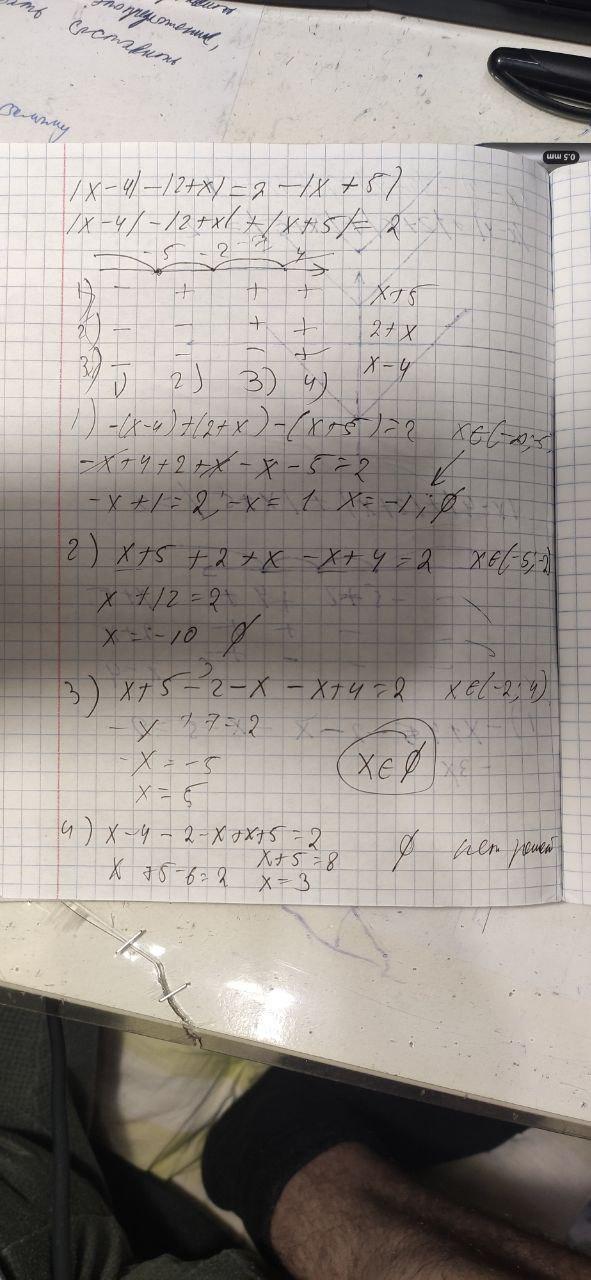 составить
0.5 mm
|x-4|-|2+x|=2-|x+5|
|x-4|-|2+x|+|x+5|=2
-5 -2 4
1) - + + + x+5
2) - - + + 2+x
3) - - - + x-4
1) 2) 3) 4)
1) -(x-4)+(2+x)-(x+5)=2 x∈(-∞;-5
-x+4+2+x-x-5=2
-x+1=2; -x=1 x=-1; ∅
2) x+5+2+x-x+4=2 x∈(-5;-2)
x+12=2
x=-10 ∅
3) x+5-2-x-x+4=2 x∈(-2;4)
-x+7=2
-x=-5
x=5
x∈∅
4) x-4-2-x+x+5=2 ∅ нет решен
x+5-6=2 x+5=8
x=3